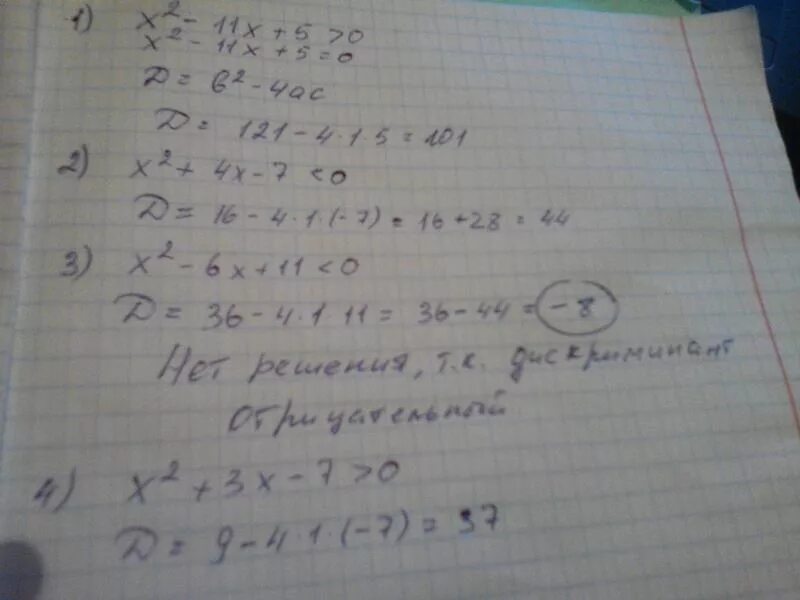 1) x² - 11x + 5 > 0
x² - 11x + 5 = 0
D = b² - 4ac
D = 121 - 4·1·5 = 101
2) x² + 4x - 7 < 0
D = 16 - 4·1·(-7) = 16 + 28 = 44
3) x² - 6x + 11 < 0
D = 36 - 4·1·11 = 36 - 44 = -8
Нет решения, т.к. дискриминант
отрицательный
4) x² + 3x - 7 > 0
D = 9 - 4·1·(-7) = 37